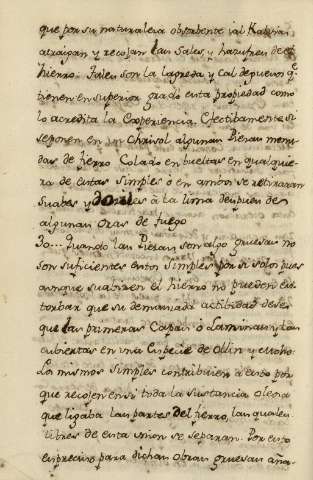 que por su naturaleza absorbente i al Kalina
atraigan y recojan las Sales, y hazufres de el
hierro. Tales son la lagreda y Cal de guevos q.e
tienen en superior grado esta propiedad como
lo acredita la Experiencia. Efectibamente si
se ponen en un Chrisol algunas Piezas menu
das de fierro Colado en bueltas en qualquie
ra de estas simples ò en ambos se retiraran
suabes y dociles à la lima despues de
algunas oras de fuego
30... Quando las Piezas son algo gruesas no
son suficientes estos Simples por si solos pues
aunque suabizen el hierro no pueden es
torbar que su demasiada actibidad dese
que las primeras Capas ò Laminas y las
combiertas en una Especie de Ollin y escoho
Los mismos Simples contribuien à esto por
que recojen en si toda la sustancia oleosa
que ligaba las partes del fierro, las quales
libres de esta union se separan. Por esto
es preciso para dichas Obras gruesas aña